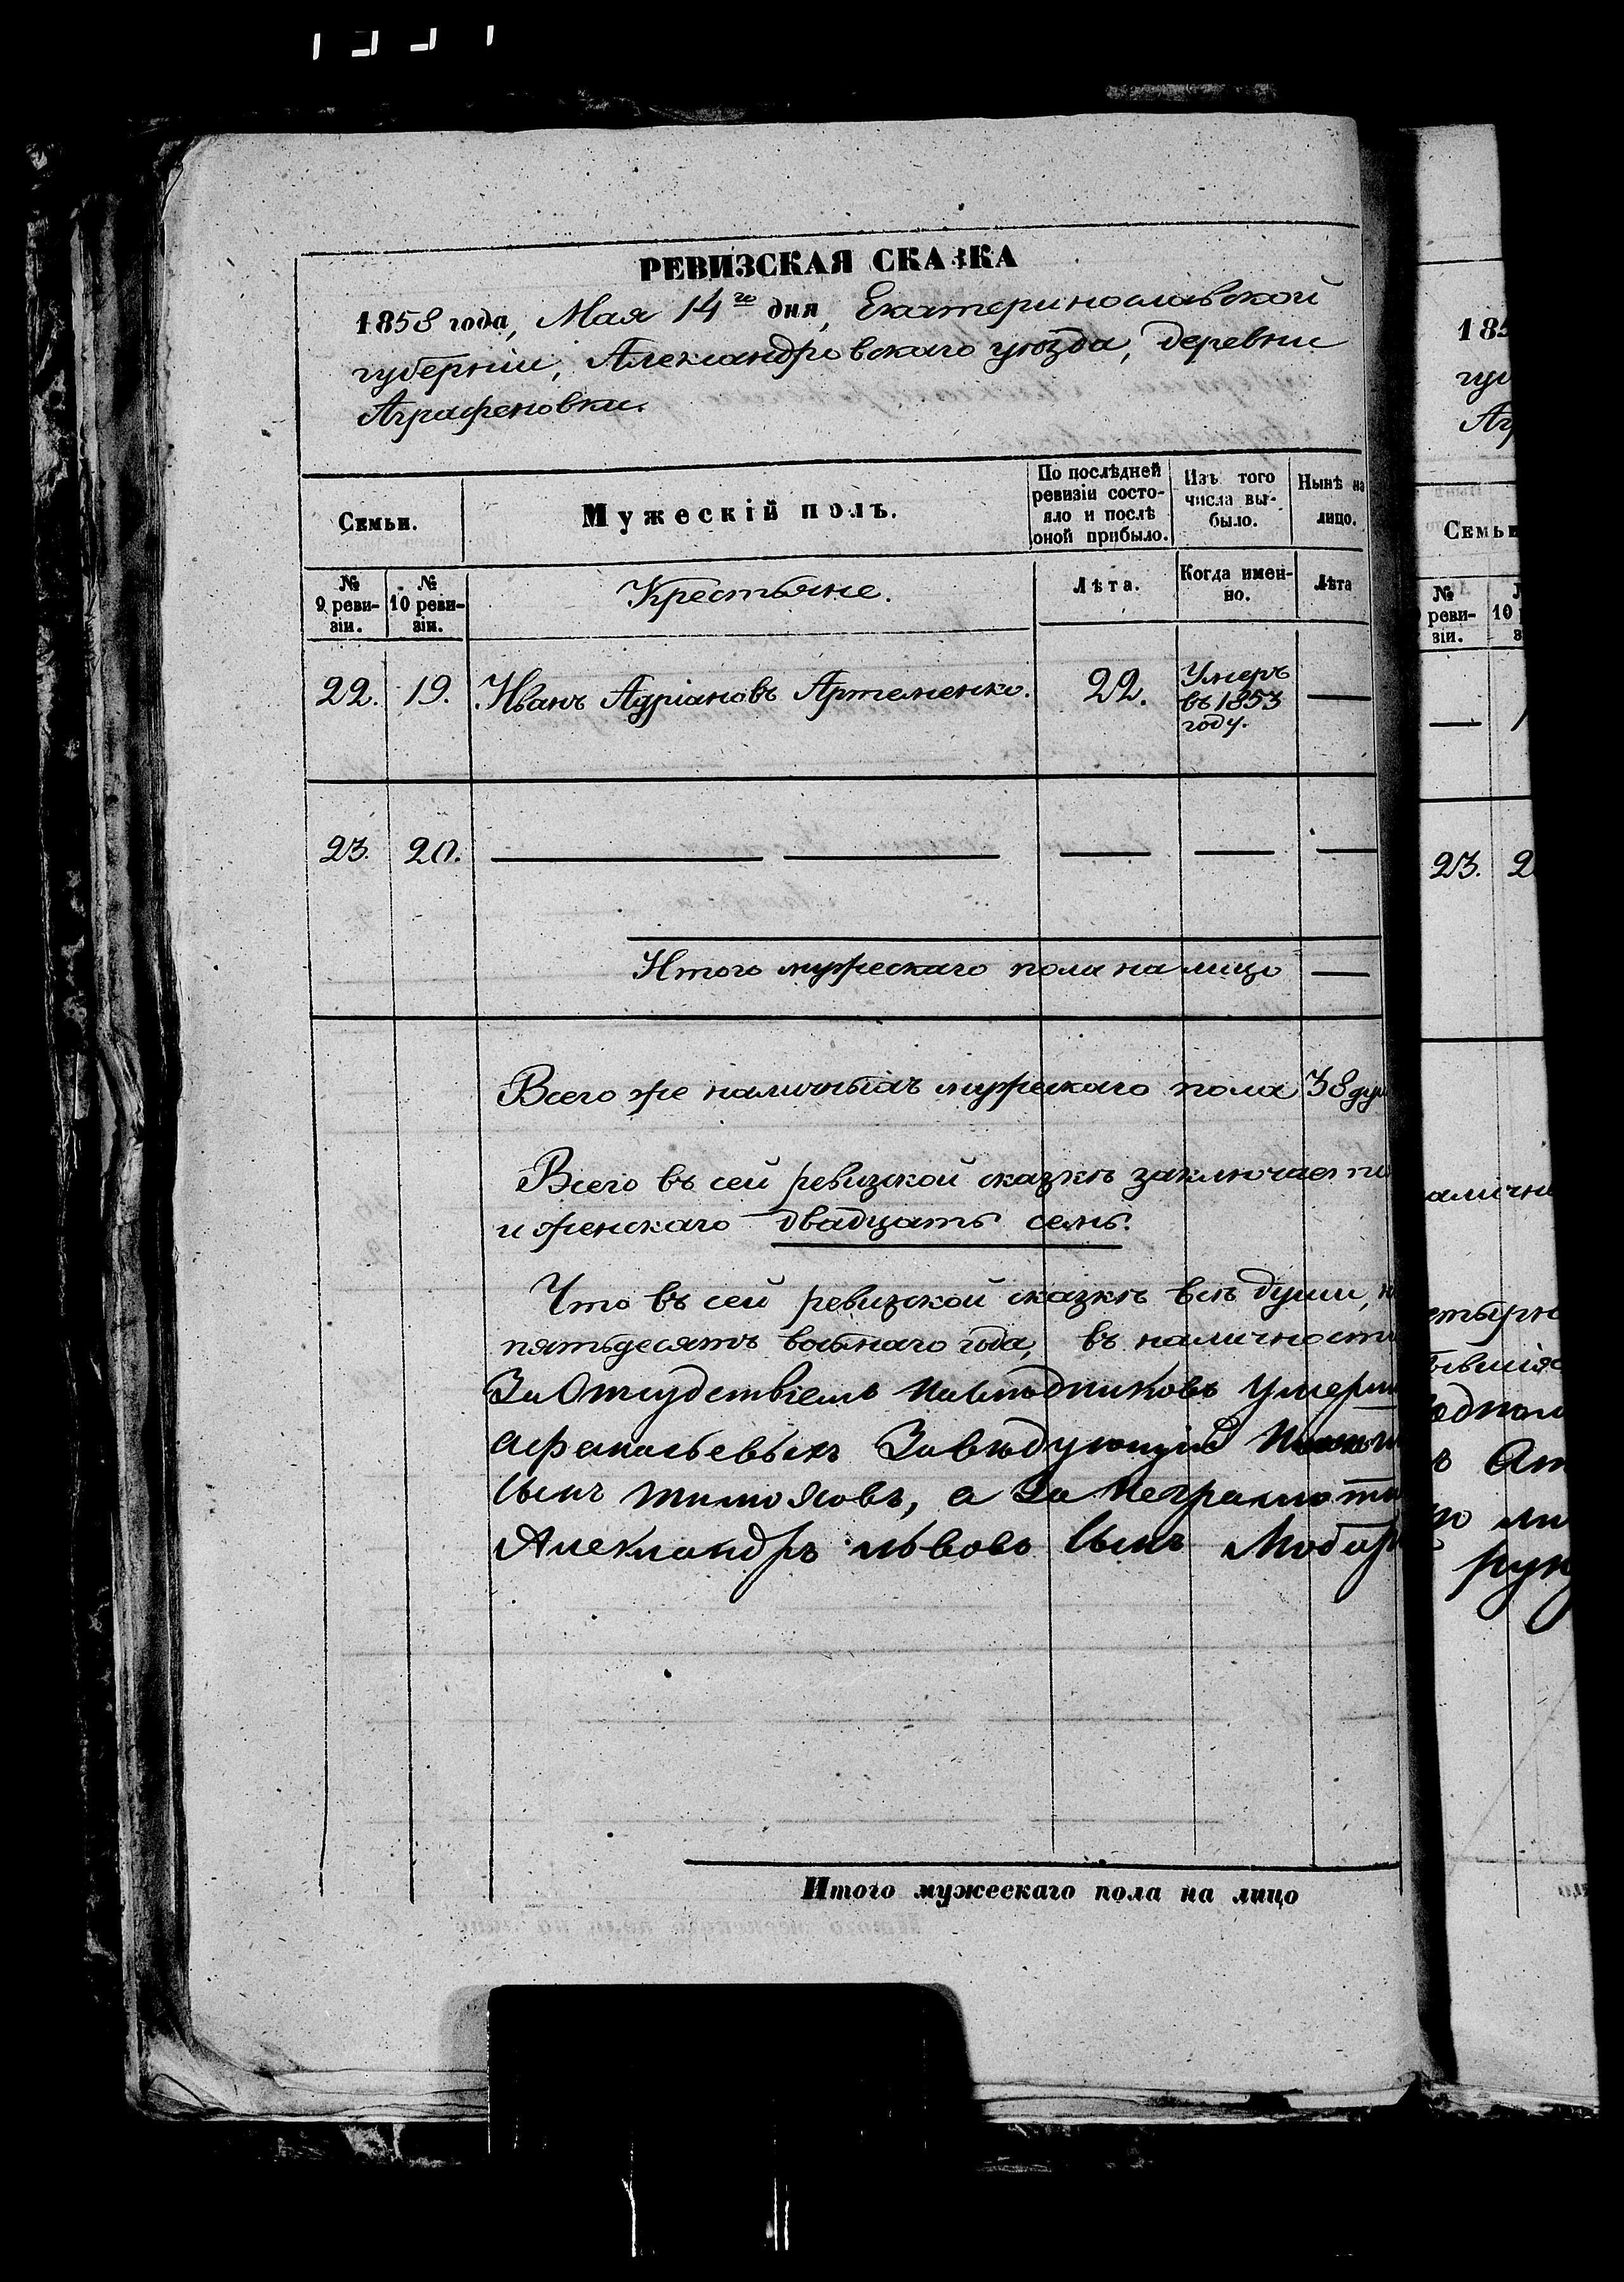 РЕВИЗСКАЯ СКАЗКА
1858 года, Мая 14го дня, Екатеринославской
губерніи, Александровскаго уѣзда, деревни
Аграфеновки.
Семьи.
Мужескій полъ.
По послѣдней ревизіи состояло и послѣ оной прибыло.
Изъ того числа выбыло.
Нынѣ на лицо.
№ 9 ревизіи.
№ 10 ревизіи.
Крестьяне.
Лѣта.
Когда именно.
Лѣта
22. 19. Иванъ Адріановъ Артеменко. 22. Умеръ въ 1853 году. —
23. 20. — — — — —
Итого мужескаго пола на лицо —
Всего же наличныхъ мужескаго пола 38 ду
Всего въ сей ревизской сказкѣ заключает
и женскаго двадцать семь.
Что въ сей ревизской сказкѣ всѣ души,
пятьдесятъ восьмаго года, въ наличности
За Отсудствіемъ Наслѣдниковъ Умерш
афанасьевыхъ Завѣдующій
сынъ тимофовъ, а За Неграмотн
Александръ львовъ сынъ
Итого мужескаго пола на лицо
185
гу
Аг
Семьи
№
реви-
зіи.
10
—
23. 2
аличн
етырн
бывшія
ъ
рук